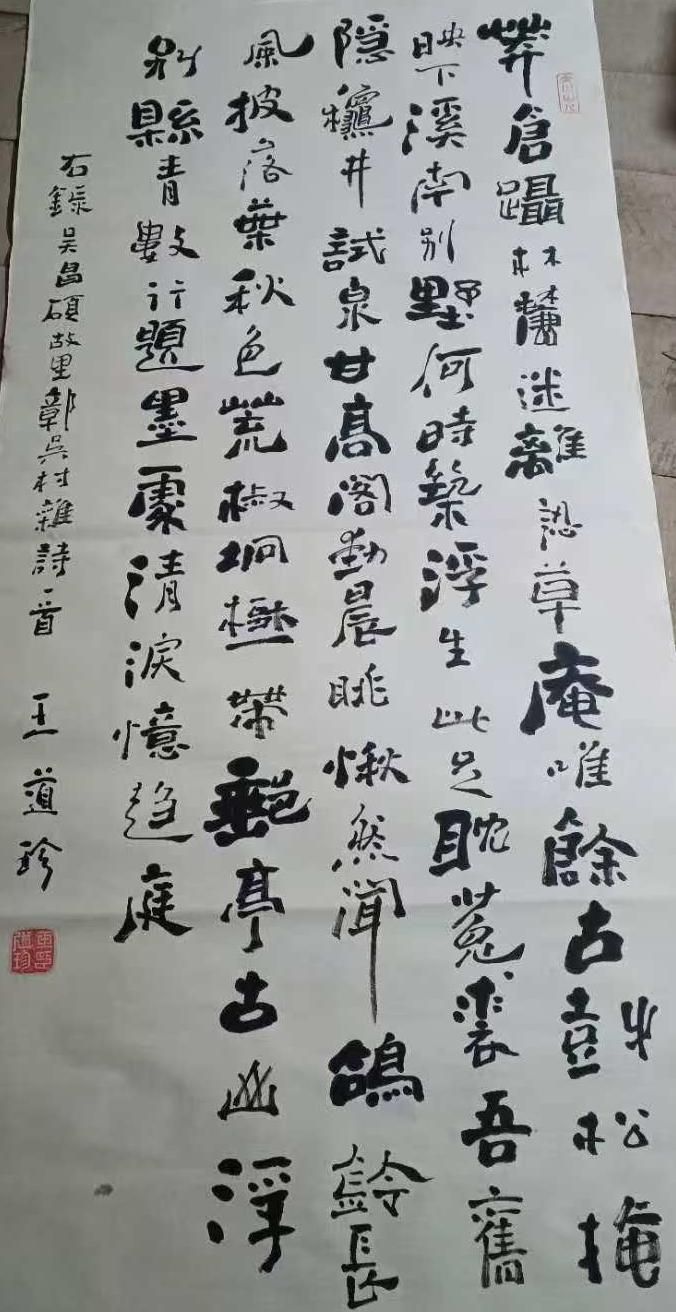 莽倉躡林麓迷離恐草庵唯餘古壹㞢松掩
映下溪南別墅何時築浮生此足耽菟裘吾舊
隱龝井試泉甘高閣勤晨眺愀然聞鴿鈴長
風披落葉秋色荒椒坰樾帶郵亭古幽浮
別縣青數行題墨處清淚憶趋庭
右錄吳昌碩故里鄣吳村雜詩一首
王道珍